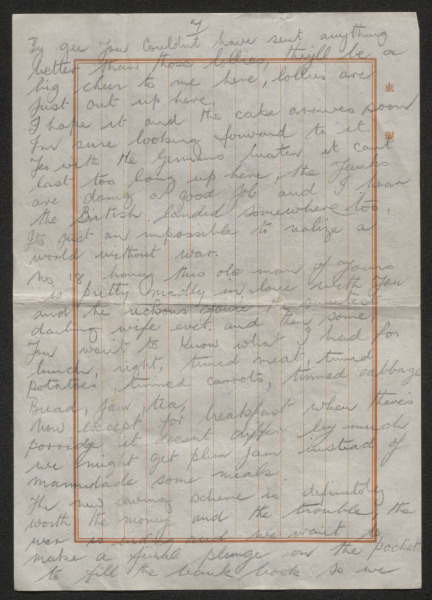 7
By gee you couldn't have sent anything
better than those lollies, they'll be a
big cheer to me here, lollies are
just out up here.
I hope it and the cake arrives soon
I'm sure looking forward to it.
Yes with the Germans beaten it can't
last too long up here, the Yanks
are doing a good job and I hear
the British landed somewhere too,
It's just an impossible to realize a
world without war.
No, 18 honey this old man of yours
is pretty madly in love with you
and he reckons you're the sweetest
darling wife ever and then some
You want to know what I had for
lunch, right, tinned meat, tinned
potatoes, tinned carrots, tinned cabbage
Bread, jam, tea,
Now except for breakfast when there's
porridge it doesn't differ by much
we might get plum jam instead of
marmalade some meals.
The new saving scheme is definitely
worth the money and the trouble, the
war is ending and we want to
make a final plunge on the pocket
to fill the bank book so we